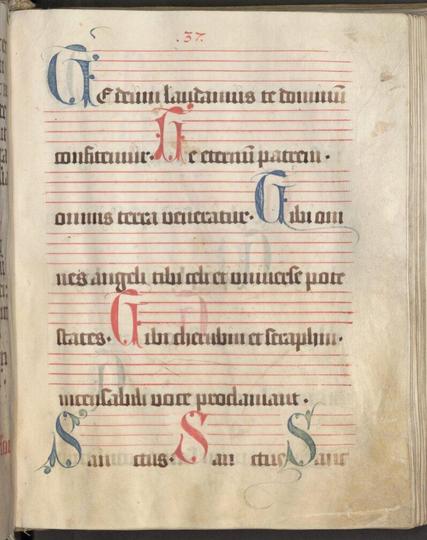 .37.
Te deum laudamus te dominū
confitemur. Te eternū patrem.
omnis terra veneratur. Tibi om
nes angeli tibi celi et universe pote
states. Tibi cherubin et seraphin.
incessabili voce proclamant.
Sanctus. Sanctus Sanc